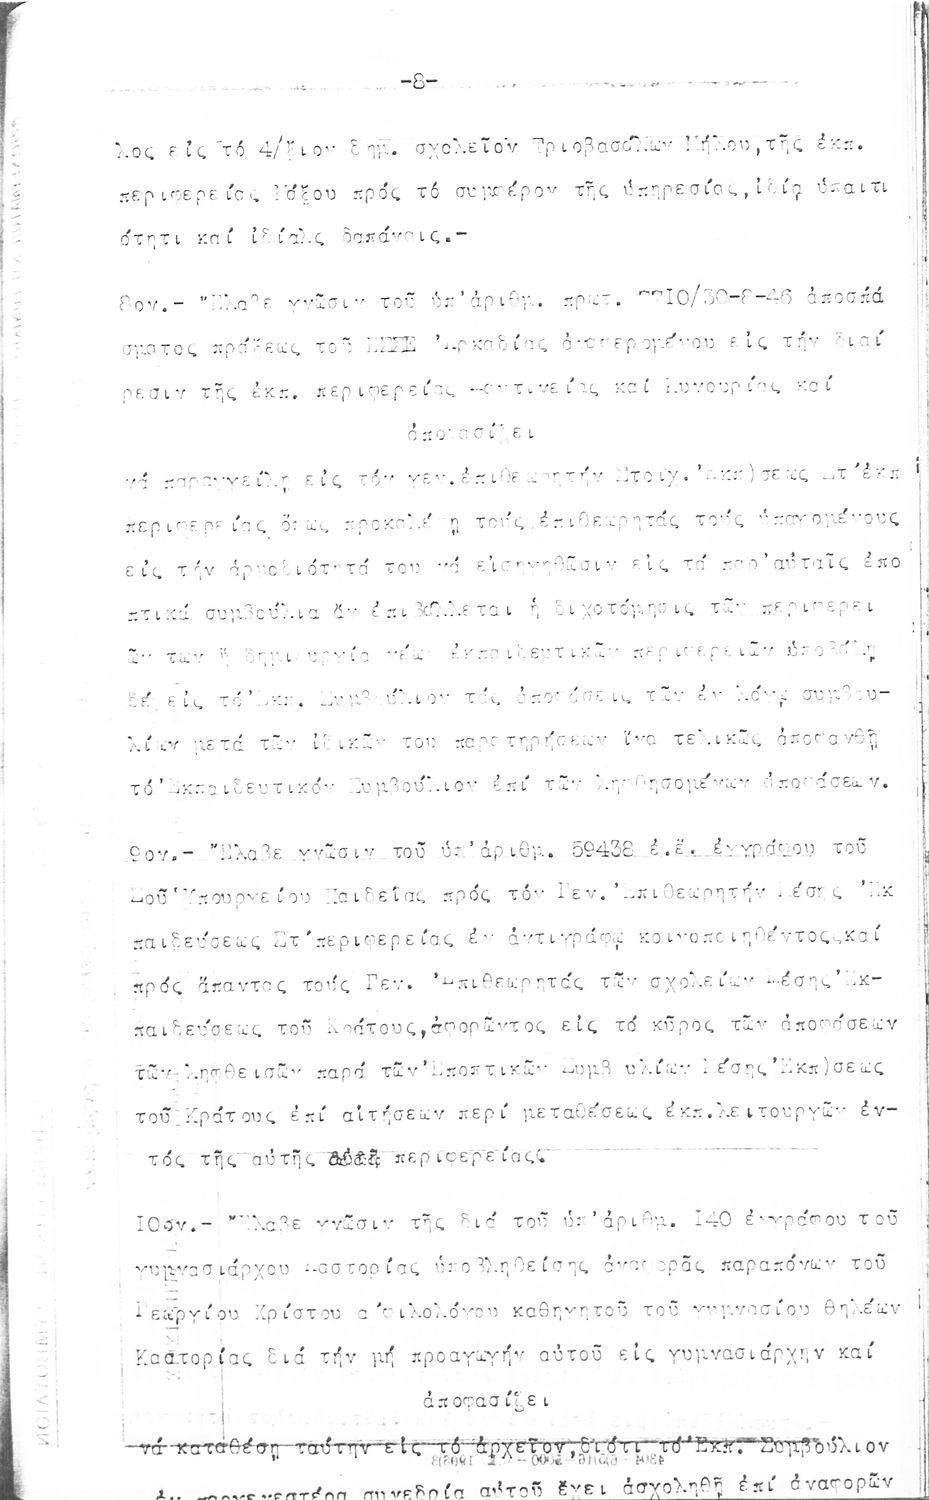 -8-
λος εἰς τό 4/ξιον δημ. σχολεῖον Τριοβασάλων Μήλου,τῆς ἐκπ.
περιφερείας Νάξου πρός τό συμφέρον τῆς ὑπηρεσίας,ἰδίᾳ ὑπαιτι
ότητι καί ἰδίαις δαπάναις.-
8ον.- Ἔλαβε γνῶσιν τοῦ ὑπ'ἀριθμ. πρωτ. /30-8-46 ἀποσπά
σματος πράξεως τοῦ Ἀρκαδίας ἀναφερομένου εἰς τήν διαί
ρεσιν τῆς ἐκπ. περιφερείας Μαντινείας καί Κυνουρίας καί
ἀποφασίζει
νά παραγγείλῃ εἰς τόν γεν.ἐπιθεωρητήν Στοιχ.Ἐκπ)σεως Στ'ἐκπ
περιφερείας ὅπως προκαλέσῃ τούς ἐπιθεωρητάς τούς ὑπαγομένους
εἰς τήν ἁρμοδιότητά του νά εἰσηγηθῶσιν εἰς τά παρ'αὐταῖς ἐπο
πτικά συμβούλια ἄν ἐπιβάλλεται ἡ διχοτόμησις τῶν περιφερει
ῶν των ἤ δημιουργία νέων ἐκπαιδευτικῶν περιφερειῶν ὑποβάλῃ
δέ εἰς τό Ἐκπ. Συμβούλιον τάς ἀποφάσεις τῶν ἐν λόγῳ συμβου-
λίων μετά τῶν ἰδικῶν του παρατηρήσεων ἵνα τελικῶς ἀποφανθῇ
τό Ἐκπαιδευτικόν Συμβούλιον ἐπί τῶν ληφθησομένων ἀποφάσεων.
9ον.- Ἔλαβε γνῶσιν τοῦ ὑπ'ἀριθμ. 59438 ἐ.ἔ. ἐγγράφου τοῦ
Σοῦ Ὑπουργείου Παιδείας πρός τόν Γεν. Ἐπιθεωρητήν Μέσης Ἐκ
παιδεύσεως Στ'περιφερείας ἐν ἀντιγράφῳ κοινοποιηθέντος καί
πρός ἅπαντας τούς Γεν. Ἐπιθεωρητάς τῶν σχολείων Μέσης Ἐκ-
παιδεύσεως τοῦ Κράτους,ἀφορῶντος εἰς τό κῦρος τῶν ἀποφάσεων
τῶν ληφθεισῶν παρά τῶν Ἐποπτικῶν Συμβ υλίων Μέσης Ἐκπ)σεως
τοῦ Κράτους ἐπί αἰτήσεων περί μεταθέσεως ἐκπ.λειτουργῶν ἐν-
τός τῆς αὐτῆς περιφερείας.
10ον.- Ἔλαβε γνῶσιν τῆς διά τοῦ ὑπ'ἀριθμ. 140 ἐγγράφου τοῦ
γυμνασιάρχου Καστορίας ὑποβληθείσης ἀναφορᾶς παραπόνων τοῦ
Γεωργίου Χρίστου α'φιλολόγου καθηγητοῦ τοῦ γυμνασίου θηλέων
Καστορίας διά τήν μή προαγωγήν αὐτοῦ εἰς γυμνασιάρχην καί
ἀποφασίζει
νά καταθέσῃ ταύτην εἰς τό ἀρχεῖον,διότι τό Ἐκπ. Συμβούλιον
ἐν προγενεστέρᾳ συνεδρίᾳ αὐτοῦ ἔχει ἀσχοληθῇ ἐπί ἀναφορῶν